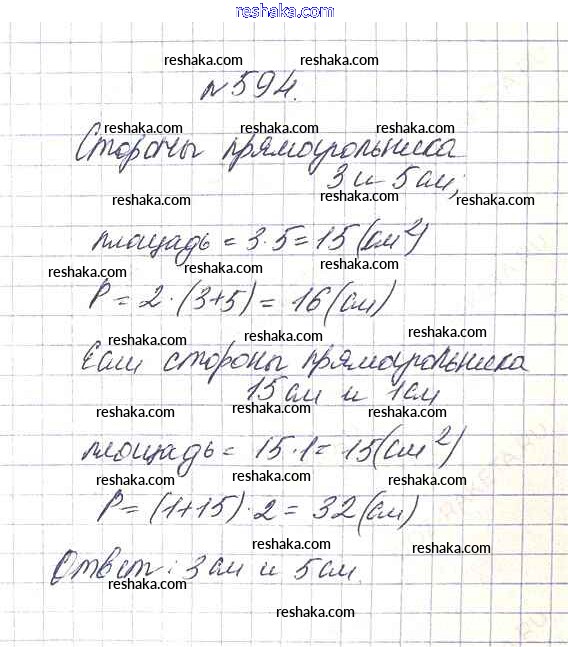 www.reshaka.com
reshaka.com reshaka.com
№594.
reshaka.com reshaka.com
Стороны прямоугольника
reshaka.com reshaka.com
3 и 5 см;
reshaka.com reshaka.com reshaka.com
площадь = 3·5=15(см²)
reshaka.com reshaka.com reshaka.com
P = 2·(3+5) = 16(см)
reshaka.com reshaka.com
Если стороны прямоугольника
15 см и 1 см
reshaka.com reshaka.com
площадь = 15·1=15(см²)
reshaka.com reshaka.com reshaka.com
P=(1+15)·2 = 32(см)
reshaka.com reshaka.com
reshaka.com
Ответ: 3 см и 5 см.
reshaka.com reshaka.com
reshaka.com